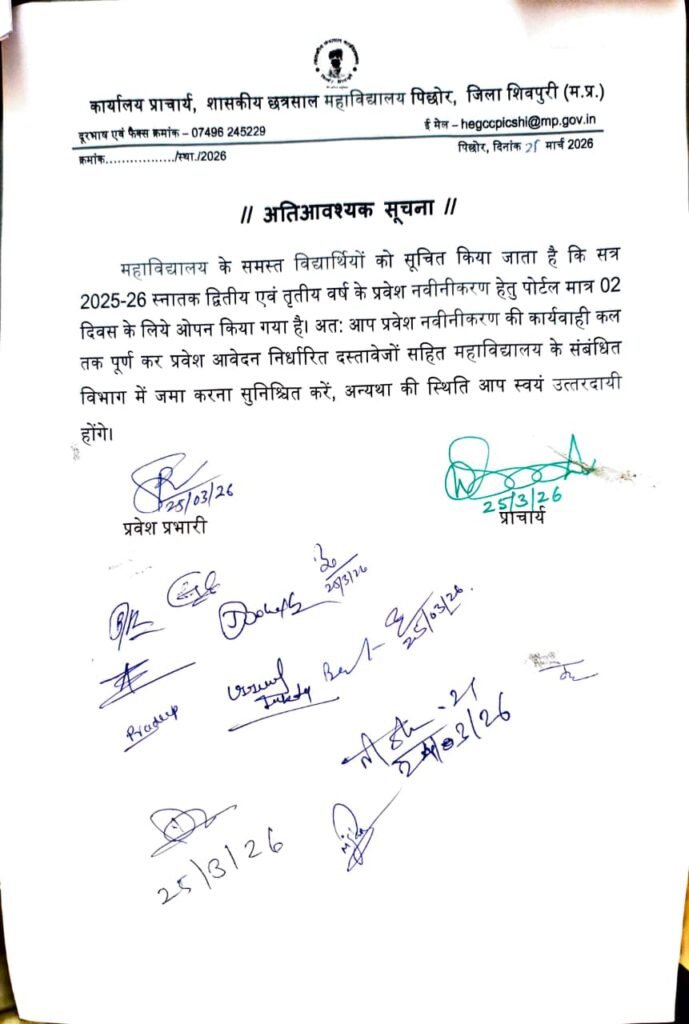 कार्यालय प्राचार्य, शासकीय छत्रसाल महाविद्यालय पिछोर, जिला शिवपुरी (म.प्र.)
दूरभाष एवं फैक्स क्रमांक – 07496 245229 ई मेल – hegccpicshi@mp.gov.in
क्रमांक................./स्था./2026 पिछोर, दिनांक 25 मार्च 2026
// अतिआवश्यक सूचना //
महाविद्यालय के समस्त विद्यार्थियों को सूचित किया जाता है कि सत्र
2025-26 स्नातक द्वितीय एवं तृतीय वर्ष के प्रवेश नवीनीकरण हेतु पोर्टल मात्र 02
दिवस के लिये ओपन किया गया है। अतः आप प्रवेश नवीनीकरण की कार्यवाही कल
तक पूर्ण कर प्रवेश आवेदन निर्धारित दस्तावेजों सहित महाविद्यालय के संबंधित
विभाग में जमा करना सुनिश्चित करें, अन्यथा की स्थिति आप स्वयं उत्तरदायी
होंगे।
25/03/26 25/3/26
प्रवेश प्रभारी प्राचार्य
25/3/26
25/03/26
Pradeep
25/3/26